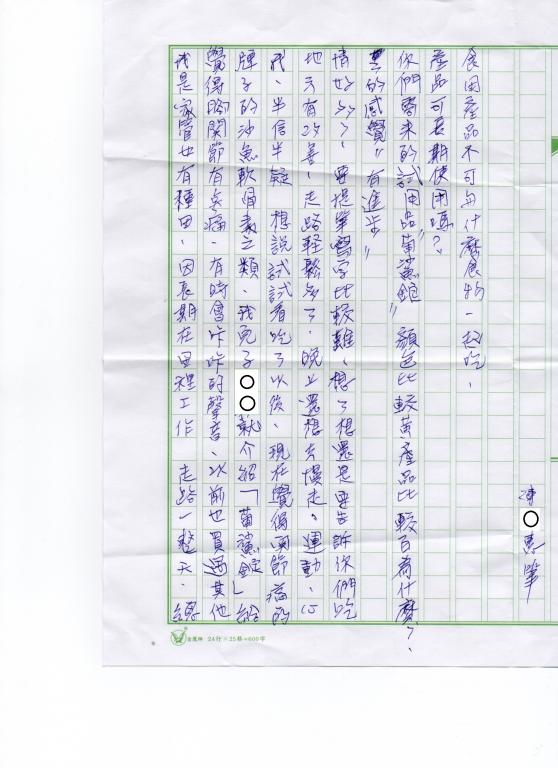 我是家管也有種田、因長期在田裡工作 走路一整天、總
覺得腳關節有疼痛、有時會咔咔的聲音、以前也買過其他
牌子的沙魚軟骨素之類、我兒子○○就介紹「葡鯊錠」給
我、半信半疑 想說試試看吃了以後、現在覺得關節痛的
地方有改善、走路輕鬆多了、晚上還想去慢走。運動、心
情也好多了、要提筆寫字比較難、想了想還是要告訴你們吃
的感覺"有進步"
你們寄來的試用品"葡鯊錠" 顏色比較黃產品比較白為什麼?、
產品可長期使用嗎?
食用產品不可與什麼食物一起吃、
陳○惠筆
24行×25格=600字